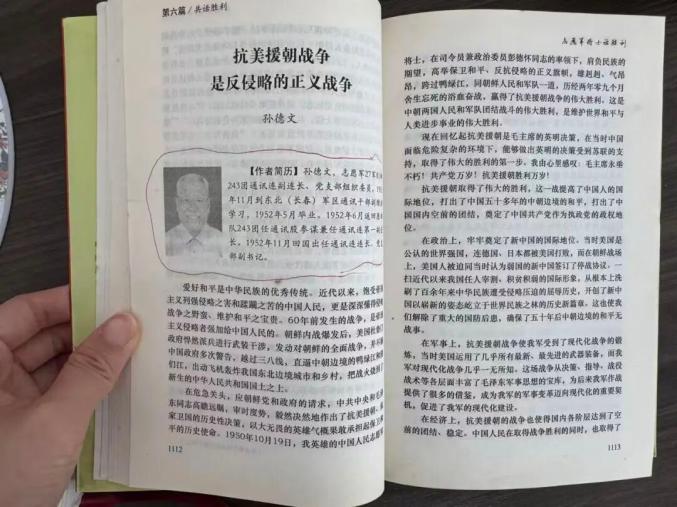 第六篇/兵话胜利
抗美援朝战争
是反侵略的正义战争
孙德文
【作者简历】孙德文,志愿军27军
243团通讯连副连长、党支部组织委员,
年11月到东北(长春)军区通讯干部训
学习,1952年5月毕业。1952年6月返回
队243团任通讯股参谋兼任通讯连第一副
长。1952年11月回国出任通讯连连长、党
部副书记。
爱好和平是中华民族的优秀传统。近代以来,饱受
主义列强侵略之害和蹂躏之苦的中国人民,更是深深懂得
战争之野蛮、维护和平之宝贵。60年前发生的战争,是
主义侵略者强加给中国人民的。朝鲜内战爆发后,美国杜鲁
政府悍然派兵进行武装干涉,发动对朝鲜的全面战争,并不
中国政府多次警告,越过三八线,直逼中朝边境的鸭绿江和
们江,出动飞机轰炸我国东北边境城市和乡村,把战火烧到
新生的中华人民共和国国土之上。
在危急关头,应朝鲜党和政府的请求,中共中央和毛
东同志高瞻远瞩,审时度势,毅然决然地作出了抗美援朝、
家卫国的历史性决策,以大无畏的英雄气概果敢承担起保卫
平的历史使命。1950年10月19日,我英雄的中国人民志愿
1112
志愿军将士话胜利
将士,在司令员兼政治委员彭德怀同志的率领下,肩负民族的
期望,高举保卫和平、反抗侵略的正义旗帜,雄赳赳、气昂
昂,跨过鸭绿江,同朝鲜人民和军队一道,历经两年零九个月
舍生忘死的浴血奋战,赢得了抗美援朝战争的伟大胜利。这是
中朝两国人民和军队团结战斗的伟大胜利,是维护世界和平与
人类进步事业的伟大胜利。
现在回忆起抗美援朝是毛主席的英明决策,在当时中国
面临危险复杂的环境下,能够做出英明的决策受到苏联的支
持,取得了伟大的胜利的第一步。我由心里感叹:毛主席永垂
不朽!共产党万岁!抗美援朝胜利万岁!
抗美援朝取得了伟大的胜利,这一战提高了中国人的国
际地位,打出了中国五十多年的中朝边境的和平,打出了中国
国内空前的团结,奠定了中国共产党作为执政党的政权地
位。
在政治上,牢牢奠定了新中国的国际地位,当时美国是
公认的世界强国,连德国、日本都被美国打败,而在朝鲜战场
上,美国人被迫同当时认为弱国的新中国签订了停战协议。一
扫近代以来我国任人宰割、积贫积弱的国际形象,从根本上洗
刷了百余年来中华民族遭受侵略压迫的屈辱历史,开创了新中
国以崭新的姿态屹立于世界民族之林的历史新篇章。这也使我
们解除了重大的国防后患,确保了五十年后中朝边境的和平无
战事。
在军事上,抗美援朝的战争使我军受到了现代化战争的锻
炼,当时美国运用了几乎所有最新、最先进的武器装备,而我
军对现代化战争几乎一无所知。这场战争从决策、指导、战役
战术等各层面丰富了毛泽东军事思想的宝库,为后来我军作战
提供了很多的借鉴,成为我军的军事变革迈向现代化的重要契
机,促进了我军的现代化建设。
在经济上,抗美援朝的战争也使得国内各阶层达到了空
前的团结、稳定。中国人民在取得战争胜利的同时,也取得了
1113